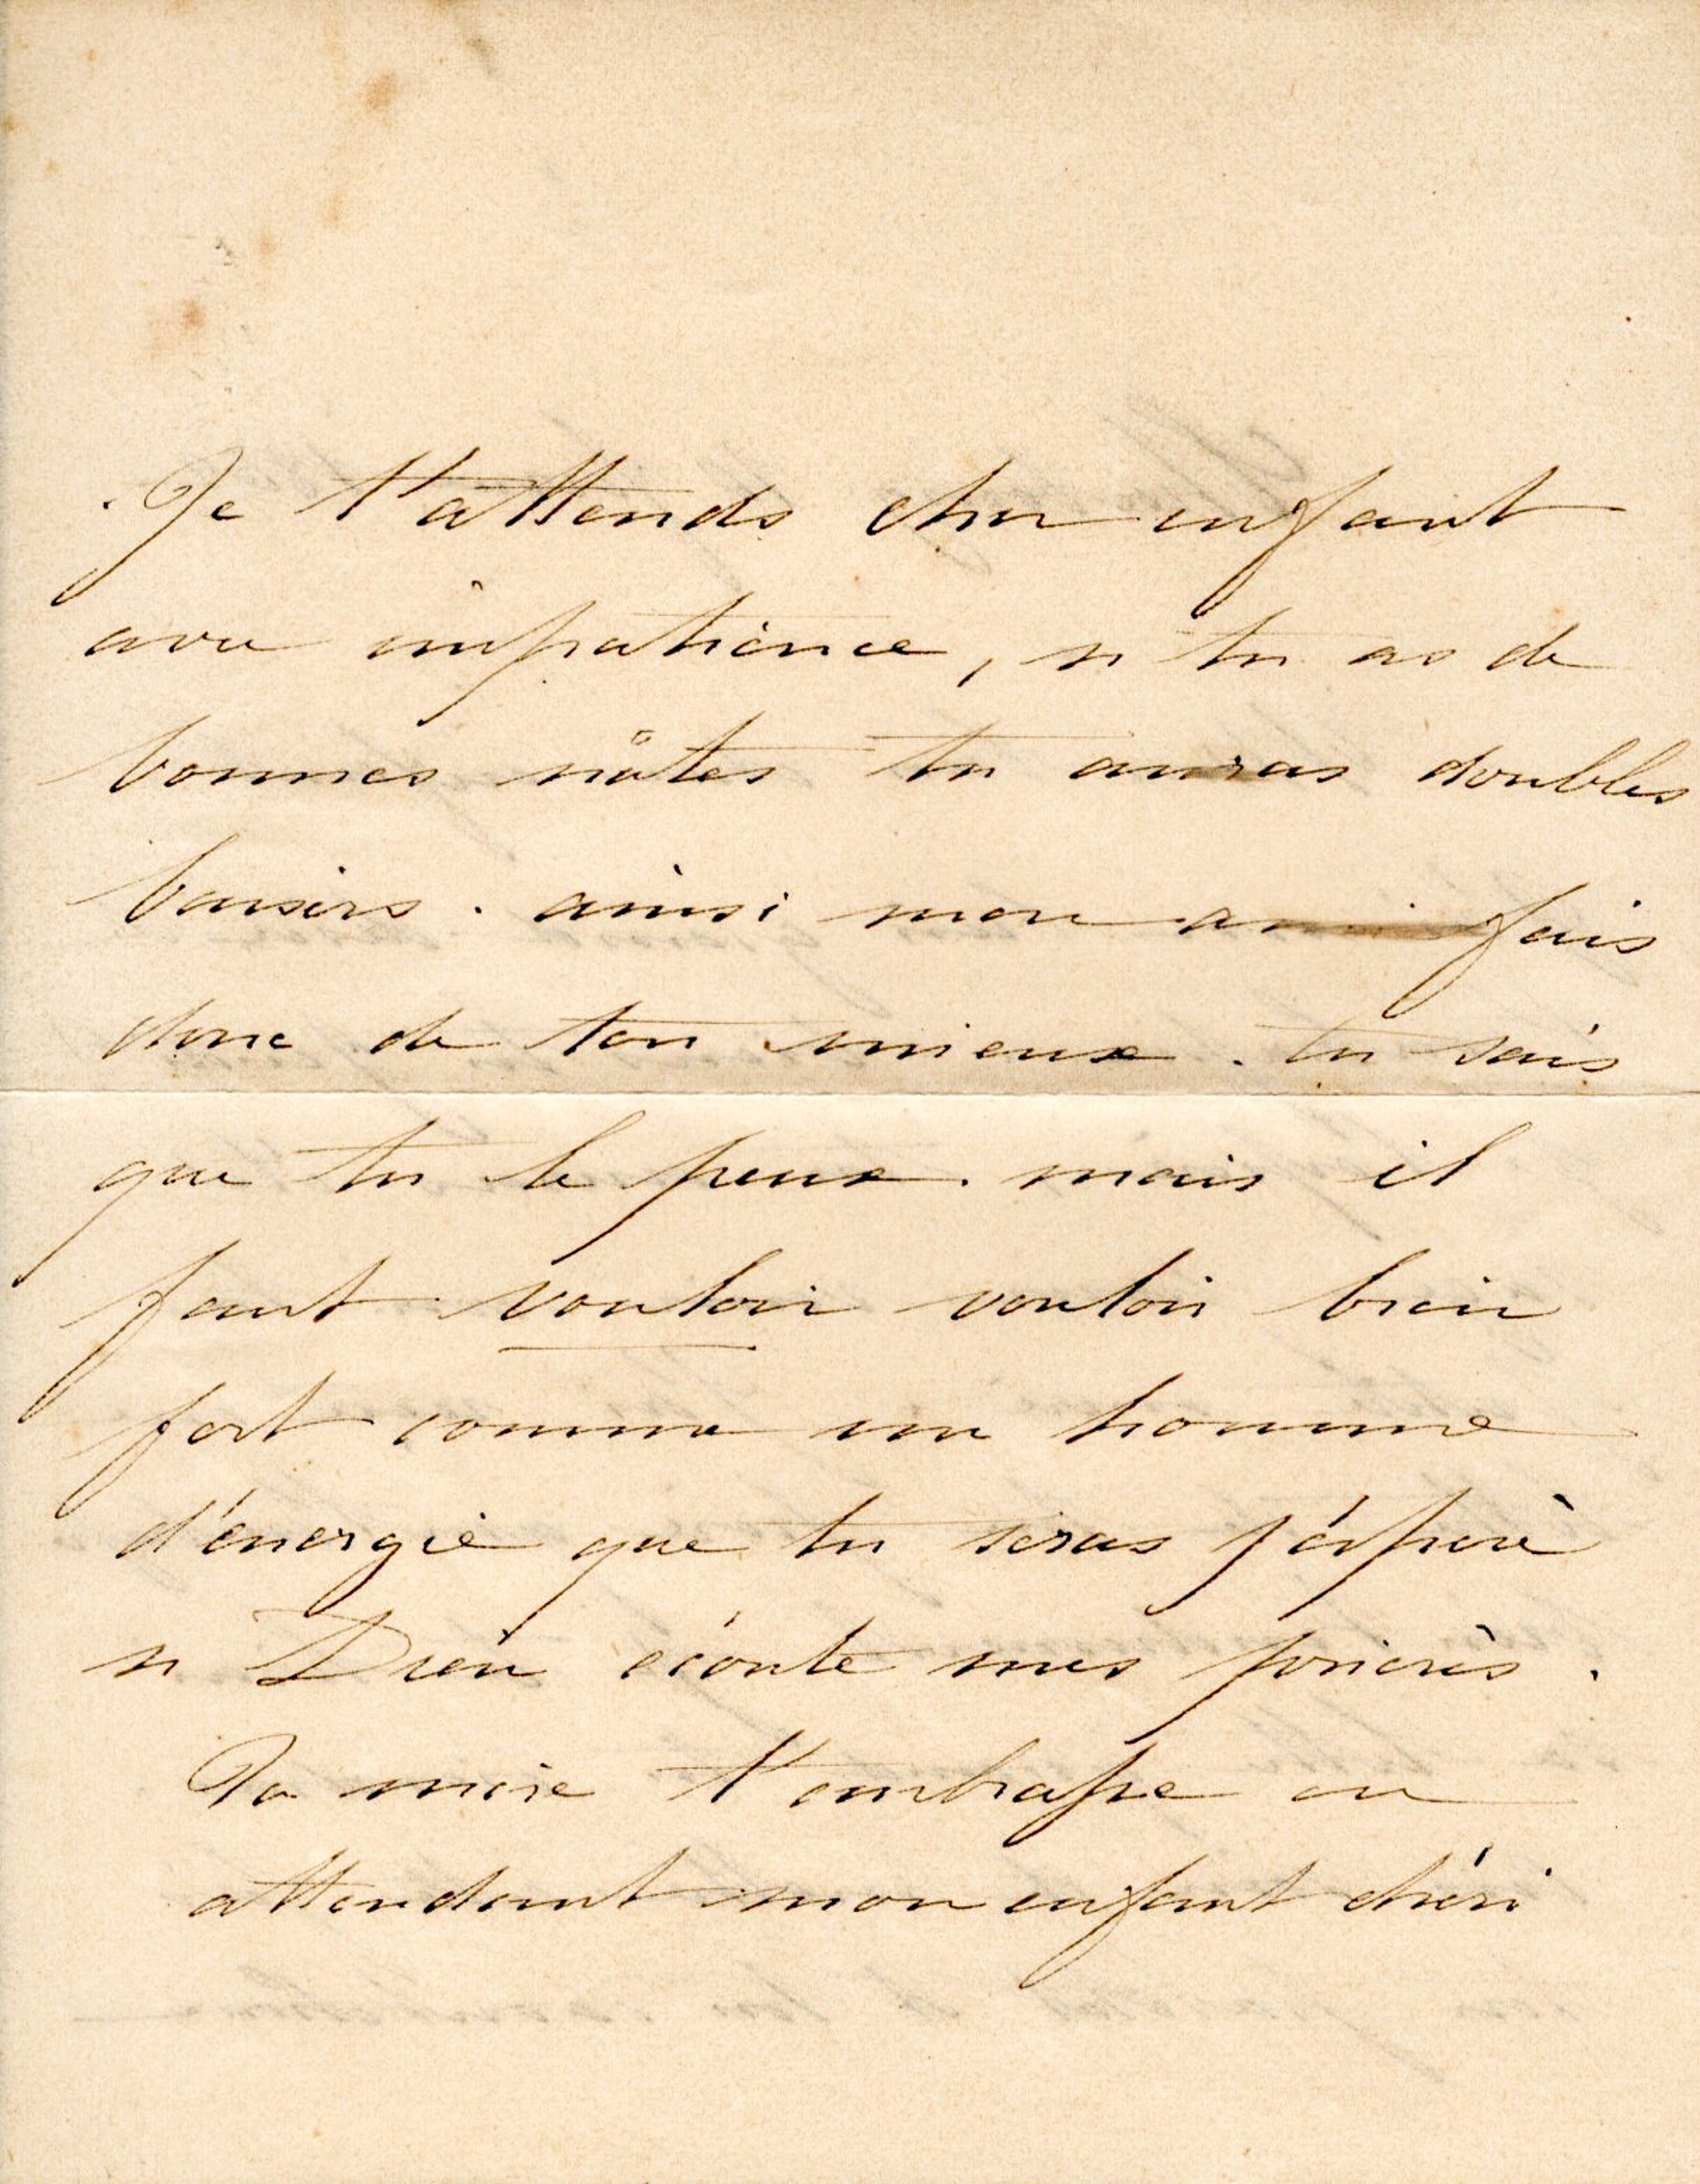 Je t'attends cher enfant
avec impatience, si tu as de
bonnes nôtes tu auras doubles
baisers. ainsi mon ami fais
donc de ton mieux. tu sais
que tu le peux. mais il
faut vouloir vouloir bien
fort comme un homme
d'énergie que tu seras j'espère
si Dieu écoute mes prières.
Ta mère t'embrasse en
attendant mon enfant chéri